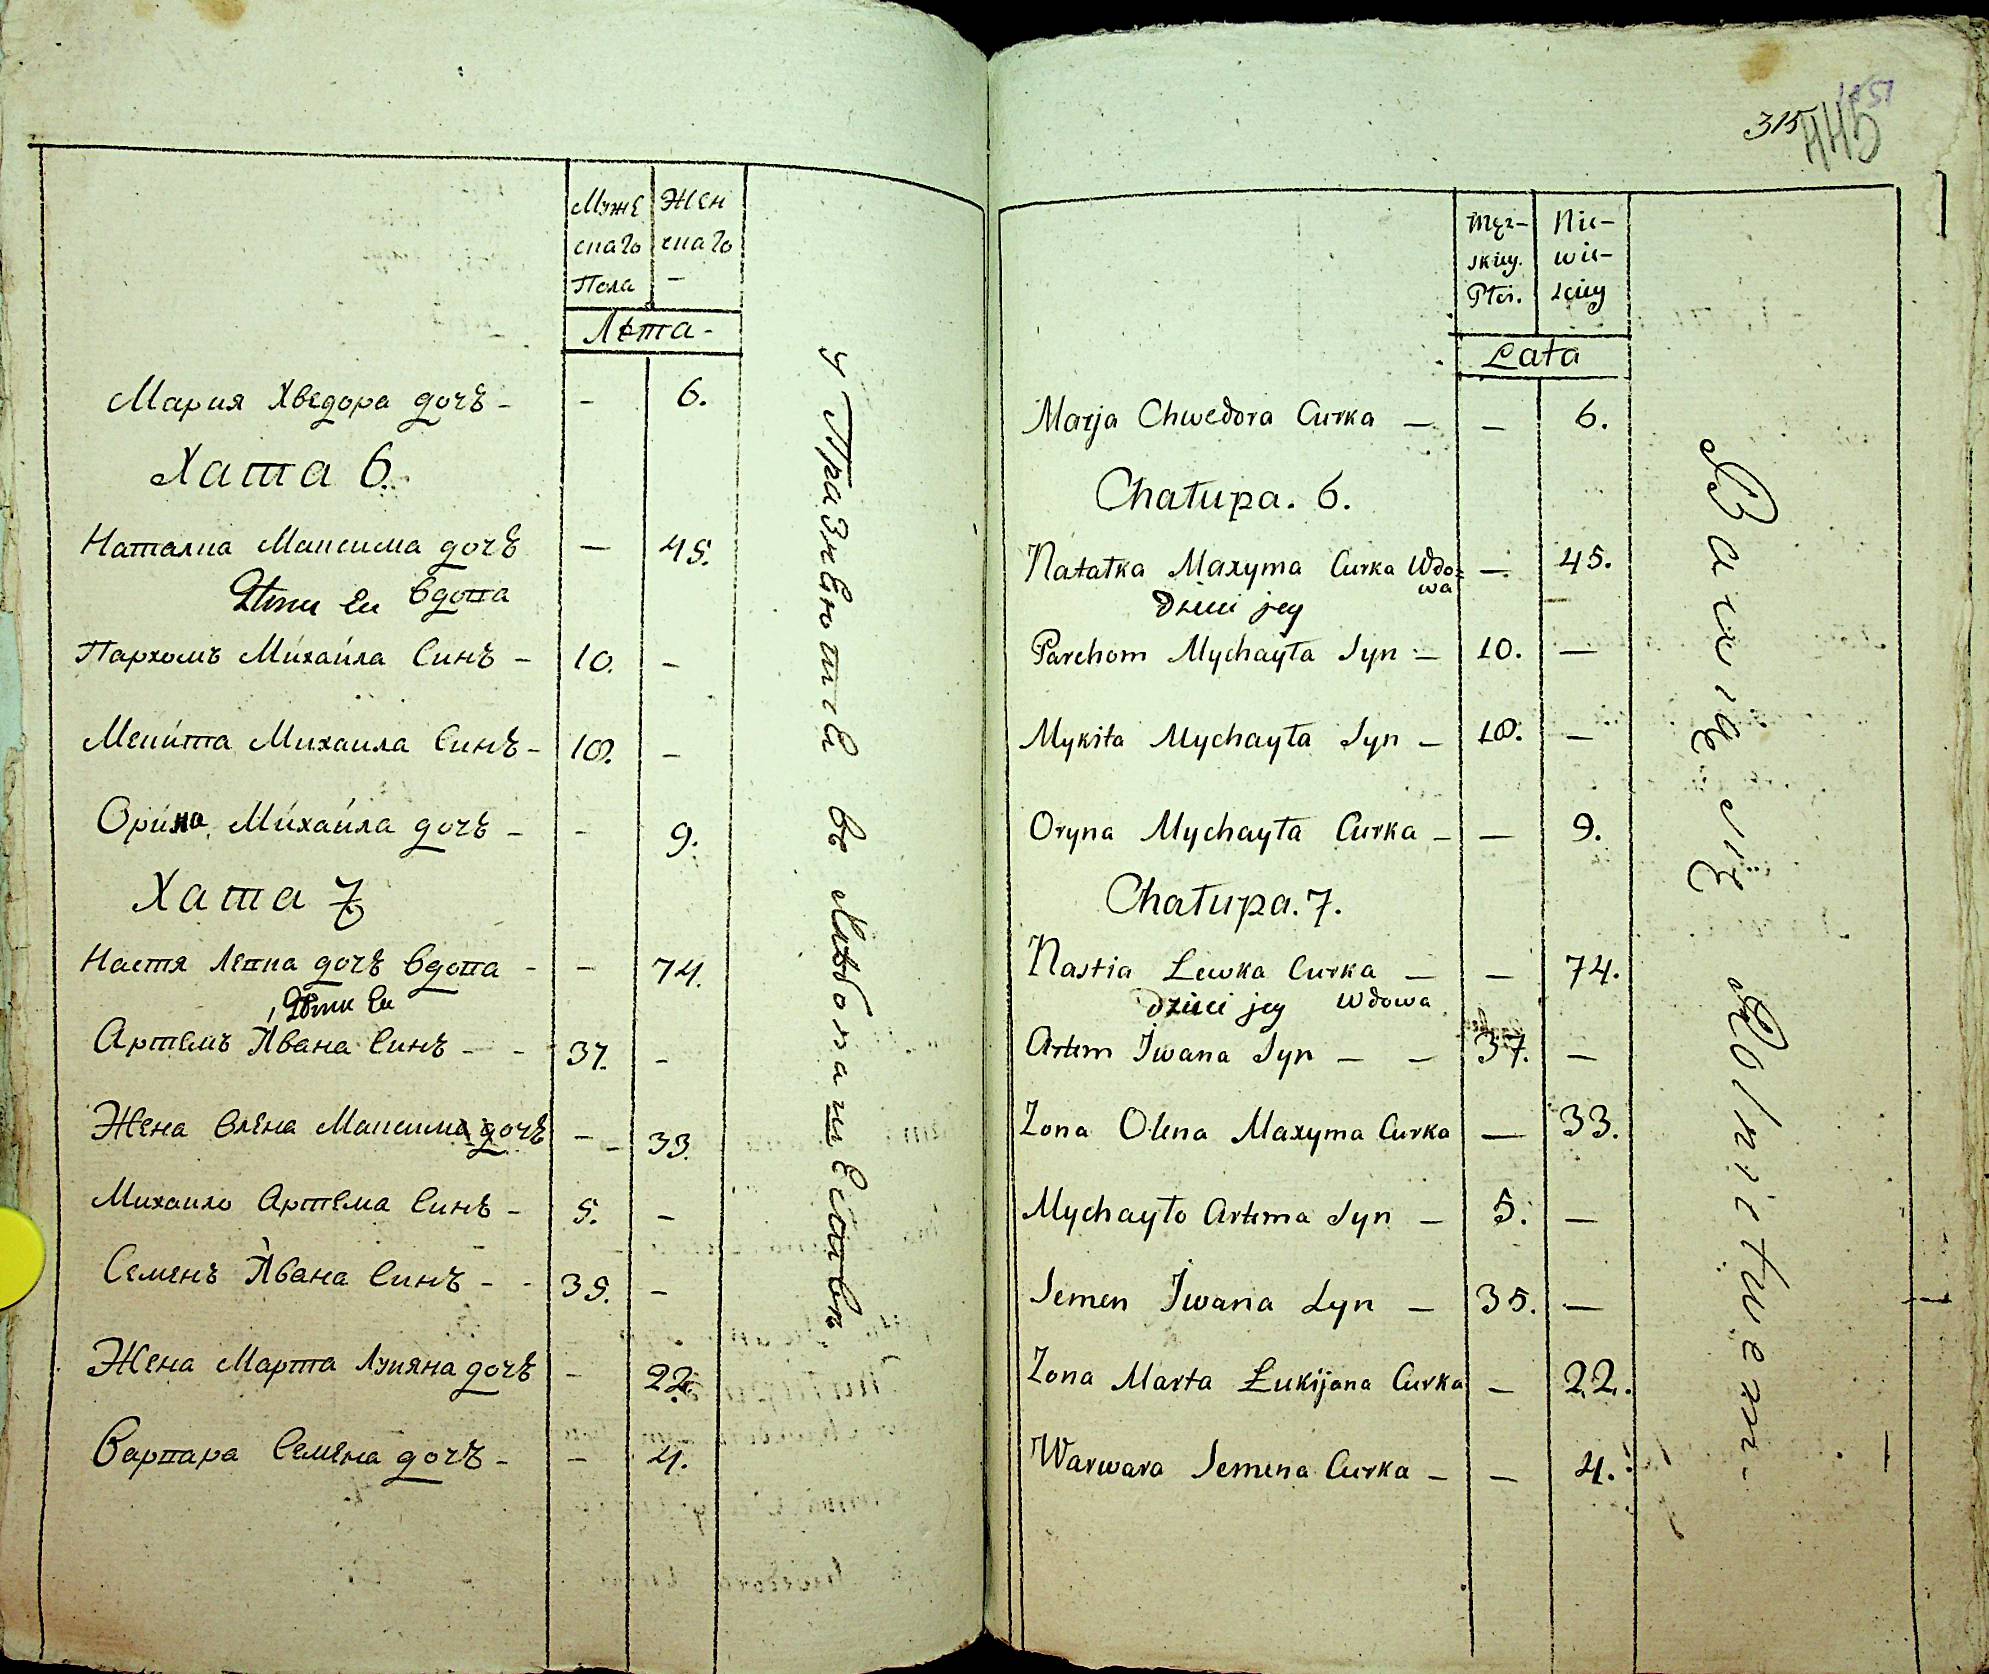 Муже Жен
скаго скаго
Пола –
Лѣта -
Мария Хведора дочъ - - 6.
Хата 6.
Наталка Максима дочъ — 45.
вдова
Дѣти Еи
Пархомъ Михайла Синъ - 10. -
Мекита Михаила Синъ - 10. -
Орина Михайла дочъ - - 9.
Хата 7
Настя Левка дочъ вдова - - 74.
Дѣти Еи
Артемъ Ивана Синъ - - 37. -
Жена Олена Максима дочъ - 33.
Михаило Артема Синъ - 5. -
Семенъ Ивана Синъ - - 35. -
Жена Марта Лукяна дочъ - 22.
Варвара Семена дочъ - - 4.
у Пражнюются вѣ
315
445
1851
Męz- Nie-
skiey wie-
Płci. sciey
Lata
Marja Chwedora Curka — — 6.
Chałupa. 6.
Natałka Maxyma Curka Wdo= — 45.
wa
Dzieci jey
Parchom Mychayła Syn — 10. —
Mykita Mychayła Syn — 10. —
Oryna Mychayła Curka — — 9.
Chałupa. 7.
Nastia Lewka Curka — — 74.
Dzieci jey Wdowa
Artem Iwana Syn — — 37. —
Zona Olena Maxyma Curka — 33.
Mychayło Artema Syn — 5. —
Semen Iwana Syn — 35. —
Zona Marta Łukijana Curka — 22.
Warwara Semena Curka — — 4.
Bawię się Rolnictwem.